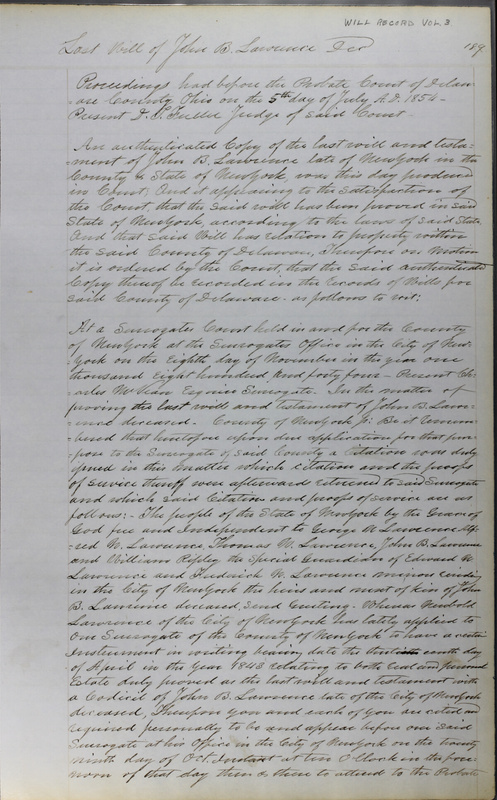 WILL RECORD VOL. 3
Last Will of John B. Lawrence Dec 189
Proceedings had before the Probate Court of Delaw-
-are County Ohio on the 5th day of July A.D. 1854 -
Present Judge of said Court -
An authenticated Copy of the last will and testa-
-ment of John B. Lawrence late of New York in the
County & State of New York was this day produced
in Court, And it appearing to the satisfaction of
the Court, that the said will has been proved in said
State of New York according to the laws of said State
And that said Will has relation to property within
the said County of Delaware, Thereupon on motion
it is ordered by the Court, that the said authenticated
Copy thereof be recorded in the records of Wills for
said County of Delaware - as follows to wit:
At a Surrogates Court held in and for the County
of New York at the Surrogates Office in the City of New-
York on the Eighth day of November in the year one
thousand Eight hundred and forty four - Present Ch-
arles McVean Esquire Surrogate. In the matter of
proving the last will and testament of John B. Lawr-
-ence deceased. County of New York Be it remem-
-bered that heretofore upon due application for that pur-
-pose to the Surrogate of said County a Citation was duly
issued in this matter which citation and the proofs
of service thereof were afterwards returned to said Surrogate
and which said Citation and proofs of service are as
follows:- The people of the State of New York by the Grace of
God free and Independent to George N. Lawrence, Alf-
-red N. Lawrence, Thomas N. Lawrence, John B. Lawrence
and William Ripley the Special Guardian of Edward N.
Lawrence and Frederick N. Lawrence minors residing
in the City of New York the heirs and next of kin of John
B. Lawrence deceased, Send Greeting - Whereas Newbold
Lawrence of the City of New York has lately applied to
our Surrogate of the County of New York to have a certain
instrument in writing bearing date the tenth day
of April in the year 1843 relating to both real and personal
Estate duly proved as the last will and testament with
a Codicil of John B. Lawrence late of the City of New York
deceased, Therefore you and each of you are cited and
required personally to be and appear before our said
Surrogate at his Office in the City of New York on the twenty
ninth day of Oct. Instant at ten O'Clock in the fore-
noon of that day then & there to attend to the Probate